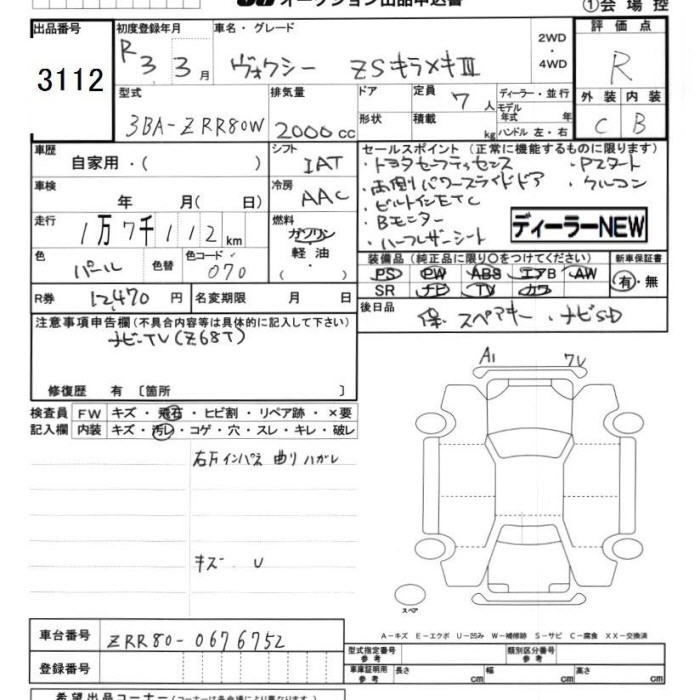 オークション出品申込書
①会場控
出品番号 初度登録年月 車名・グレード 評価点
3112 R3 3月 ヴォクシー ZSキラメキⅢ 2WD・4WD R
型式 排気量 ドア 定員 7人 ディーラー・並行 外装 内装
3BA-ZRR80W 2000cc 形状 積載 kg モデル年式 年 ハンドル 左・右 C B
車歴 シフト セールスポイント (正常に機能するものに限ります)
自家用・( ) IAT ・トヨタセーフティセンス ・Pスタート
車検 冷房 ・両側パワースライドドア ・クルコン
年 月( 日) AAC ・ビルトインETC
走行 燃料 ・Bモニター
1万7千112km ガソリン ・ハーフレザーシート ディーラーNEW
軽油
・( )
色 色替 色コード 装備品 (純正品に限り〇をつけてください) 新車保証書
パール 070 PS PW ABS エアB AW 有・無
SR ナビ TV カワ
R券 12470円 名変期限 月 日 後日品
保、スペアキー、ナビSD
注意事項申告欄(不具合内容等は具体的に記入して下さい)
ナビ-TV(Z68T)
修復歴 有 [箇所 ]
A1 7U
検査員 FW キズ・飛石・ヒビ割・リペア跡・×要
記入欄 内装 キズ・汚レ・コゲ・穴・スレ・キレ・破レ
右前インパネ 曲り ハガレ
キズ U
スペア
A-キズ E-エクボ U-凹み W-補修跡 S-サビ C-腐食 XX-交換済
車台番号 ZRR80-0676752
型式指定番号 参考 類別区分番号 参考
登録番号
車庫証明用 参考 長さ cm 幅 cm 高さ cm
希望出品コーナー (コーナーは各会場により異なります)